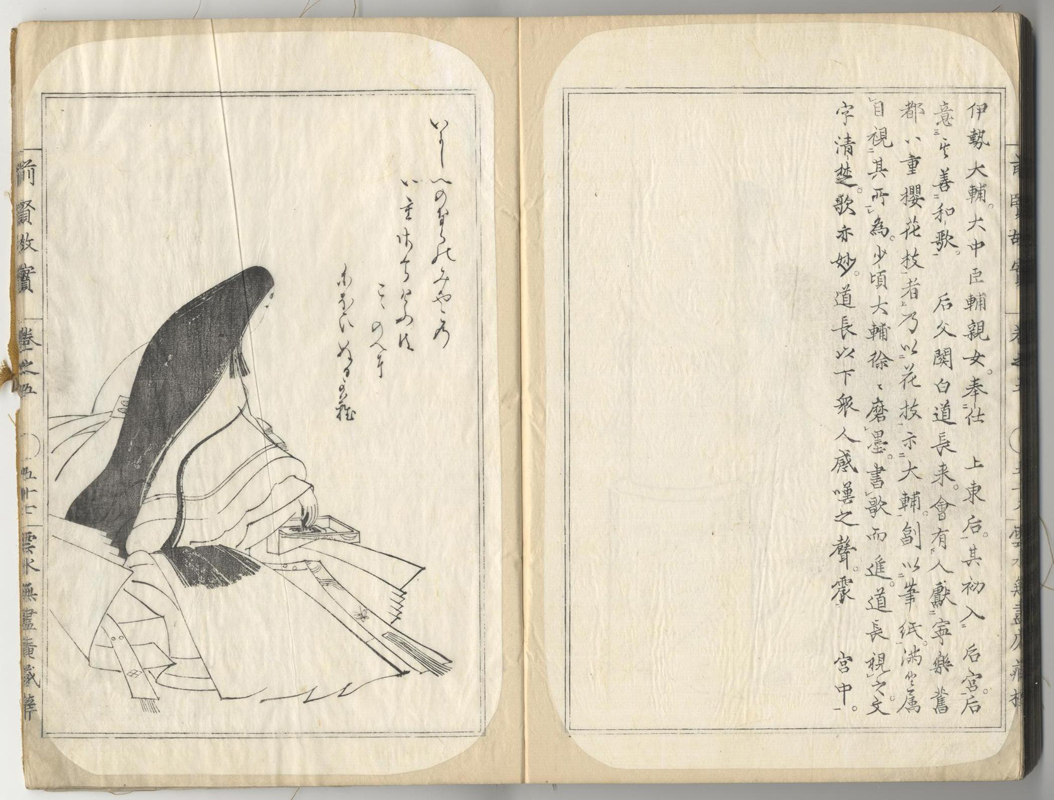 伊勢大輔。大中臣輔親女。奉仕 上東后。其初入 后宮。后
意其善和歌。 后父関白道長来。會有人獻寧樂舊
都八重櫻花枝者。乃以花枝示大輔。副以筆紙。満堂属
目視其所為。少頃大輔徐々磨墨。書歌而進。道長視之。文
字清楚。歌亦妙。道長以下衆人感嘆之聲。震 宮中。
いにしへのならのみやこの
八重さくらけふは
こゝのへに
にほひぬるかな
前賢故實 卷之五
五十七 雲水無盡庵藏梓